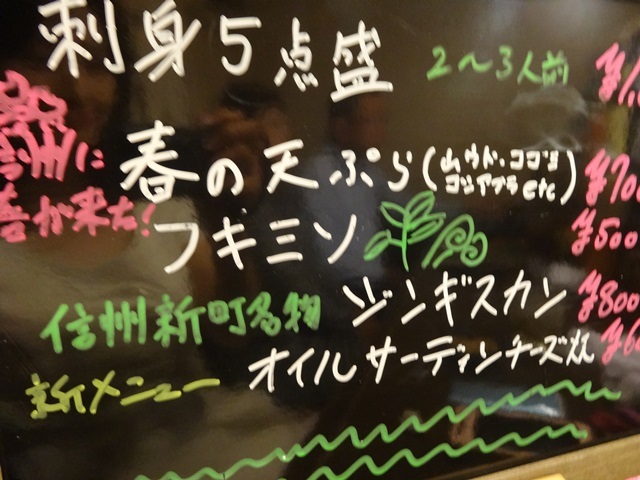 刺身5点盛 2〜3人前 ¥1,
信州に
春が来た!
春の天ぷら(山ウド・コゴミ
コシアブラ etc) ¥70
フキミソ ¥500
信州新町名物 ジンギスカン ¥800
新メニュー オイルサーディンチーズ焼 ¥6